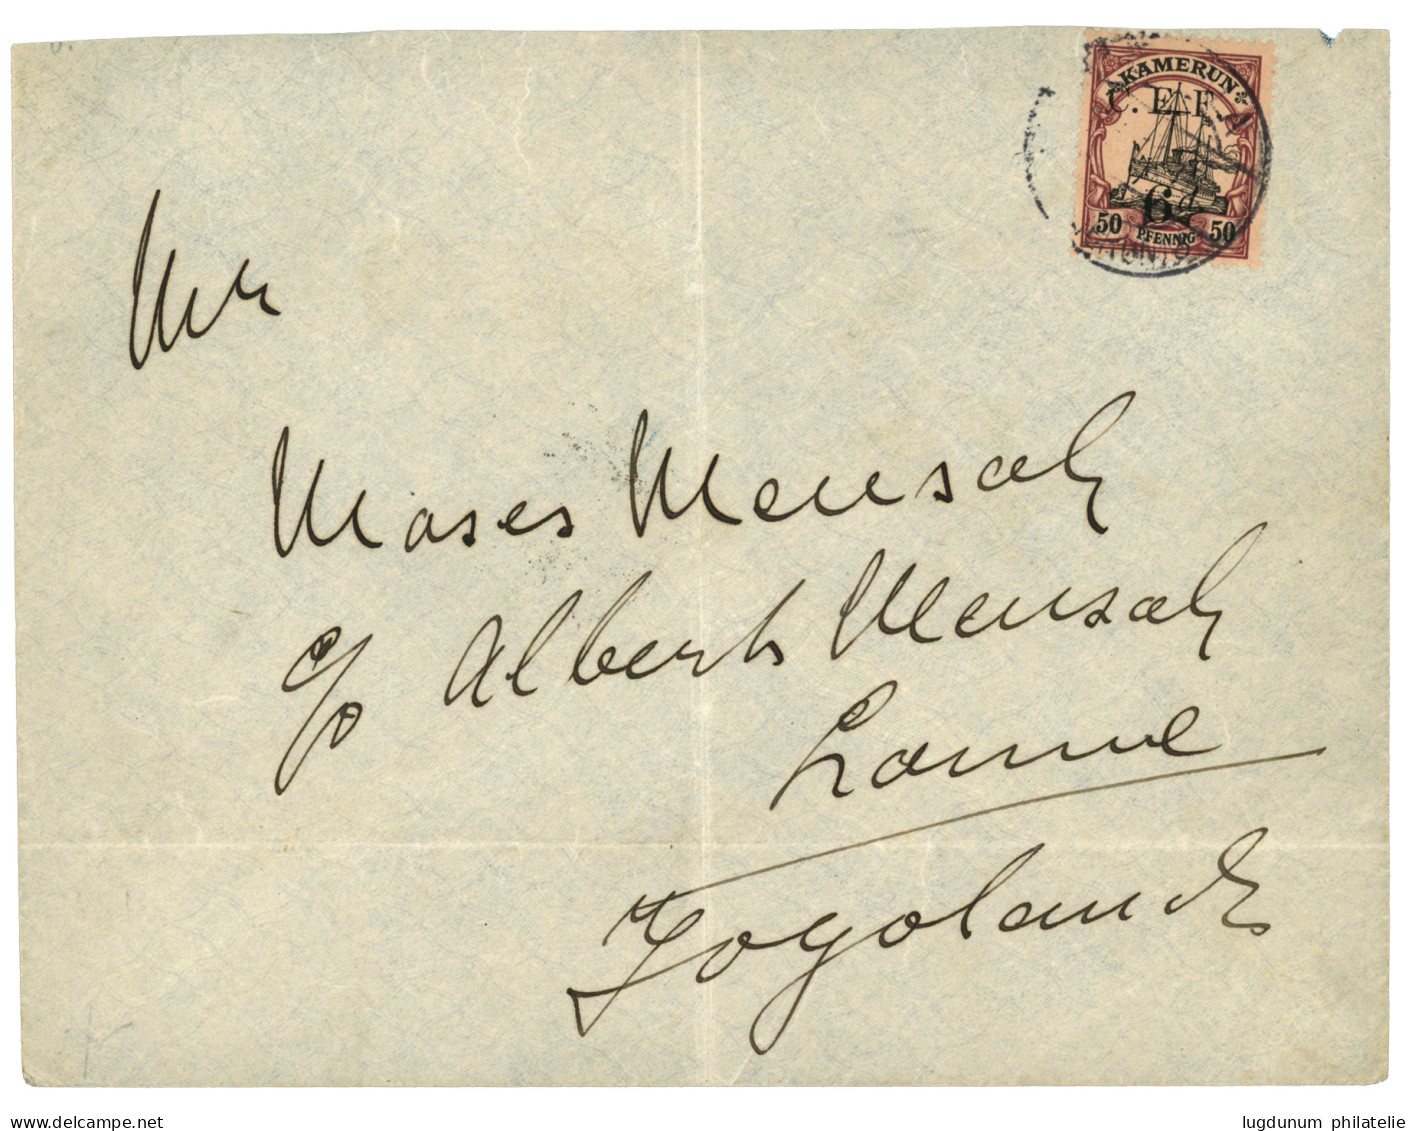 KAMERUN
C. E. F.
6d
50 PFENNIG 50
Mr
Moses Mensah
c/o Albert Mensah
Lome
Togoland
delcampe.net
lugdunum philatelie